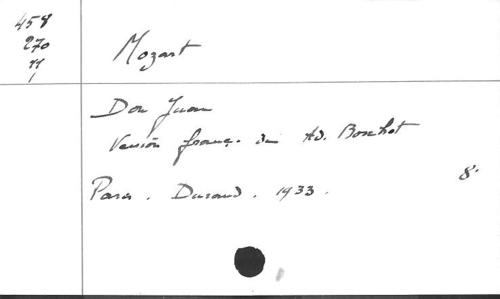 458
270
11
1
Mozart
Don Juan
Version franç. de Ad. Boschot
Paris. Durand. 1933.
8°